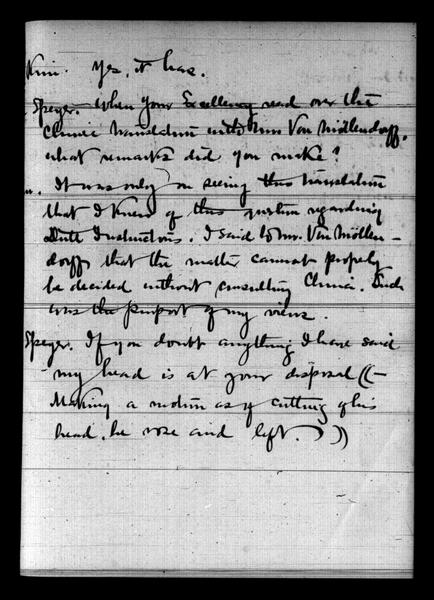 Kim. Yes, it has.
Speyer. When your Excellency read over the
Chinese translation with Mr. Von Möllendorff,
what remarks did you make?
It was only on seeing this translation
that I knew of this question regarding
Instructors. I said to Mr. Von Möllen-
dorff that the matter cannot properly
be decided without consulting China. Such
was the purport of my views.
Speyer. If you doubt anything I have said
my head is at your disposal ((-
Making a motion as if cutting of his
head, he rose and left. ))